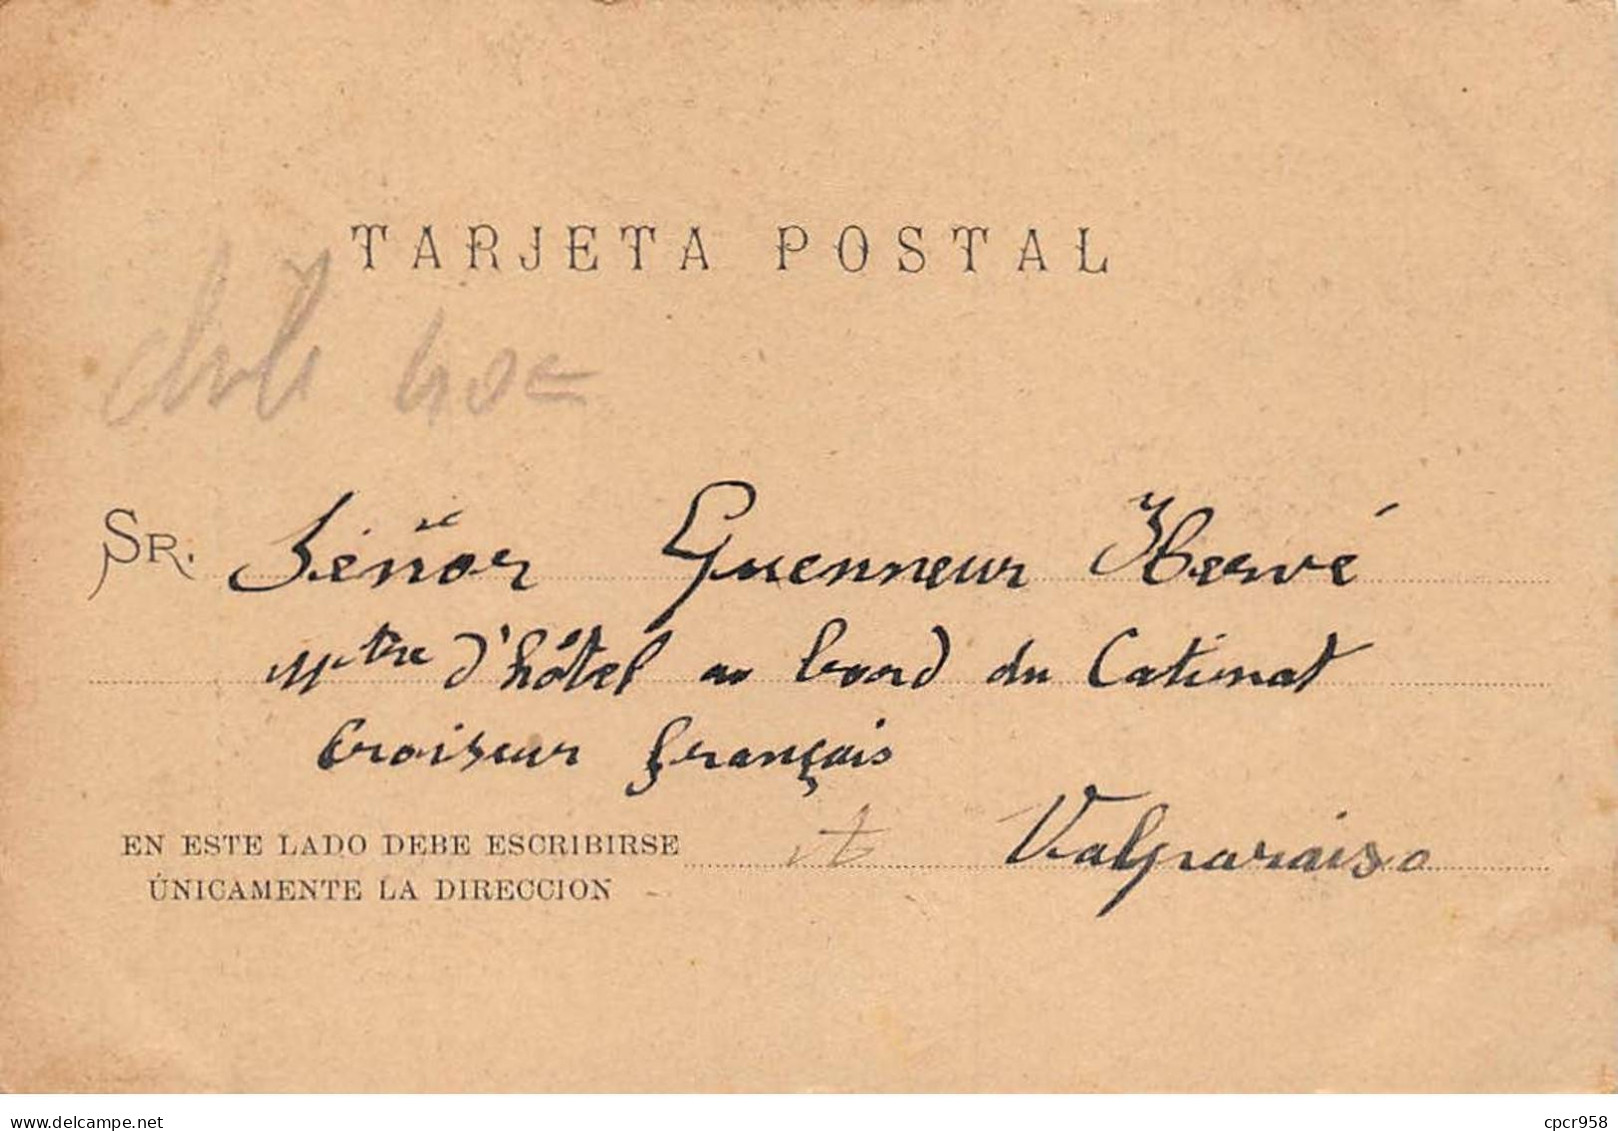 TARJETA POSTAL
SR. Séñor Guenneur Hervé
Mtre d'hôtel au bord du Catinat
Croiseur français
EN ESTE LADO DEBE ESCRIBIRSE
ÚNICAMENTE LA DIRECCION
Valparaiso
delcampe.net
cpcr958